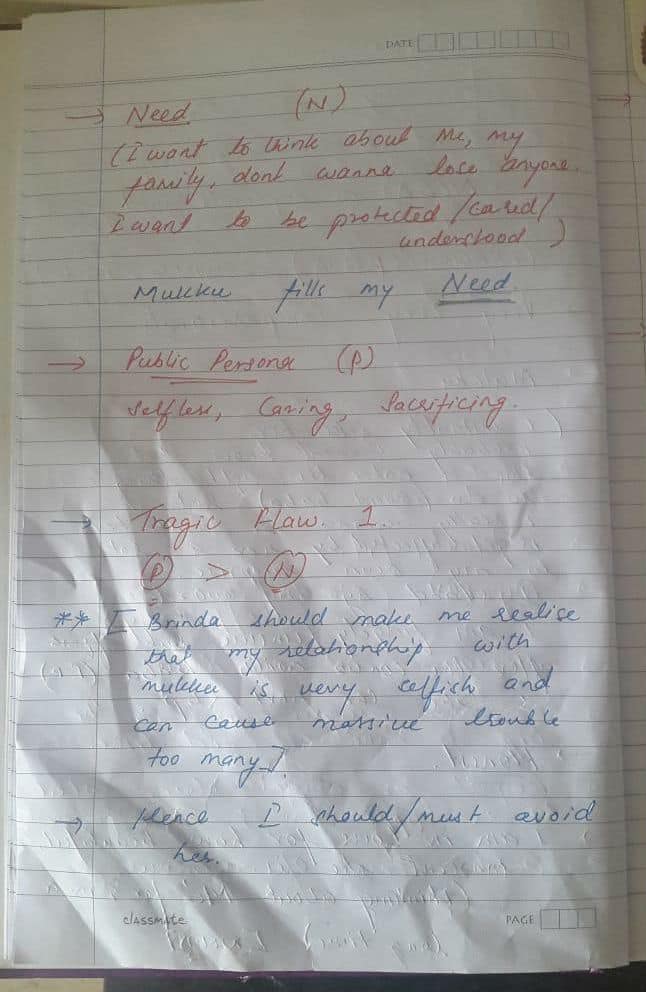 DATE
→ Need (N)
(I want to think about Me, my
family, dont wanna lose anyone.
I want to be protected/cared/
understood)
Mukku fills my Need.
→ Public Persona (P)
Selfless, Caring, Sacrificing.
→ Tragic Flaw. 1.
P > N
** [ Brinda should make me realise
that my relationship with
mukku is very selfish and
can cause massive trouble
too many].
→ Hence I should/must avoid
her.
classmate
PAGE